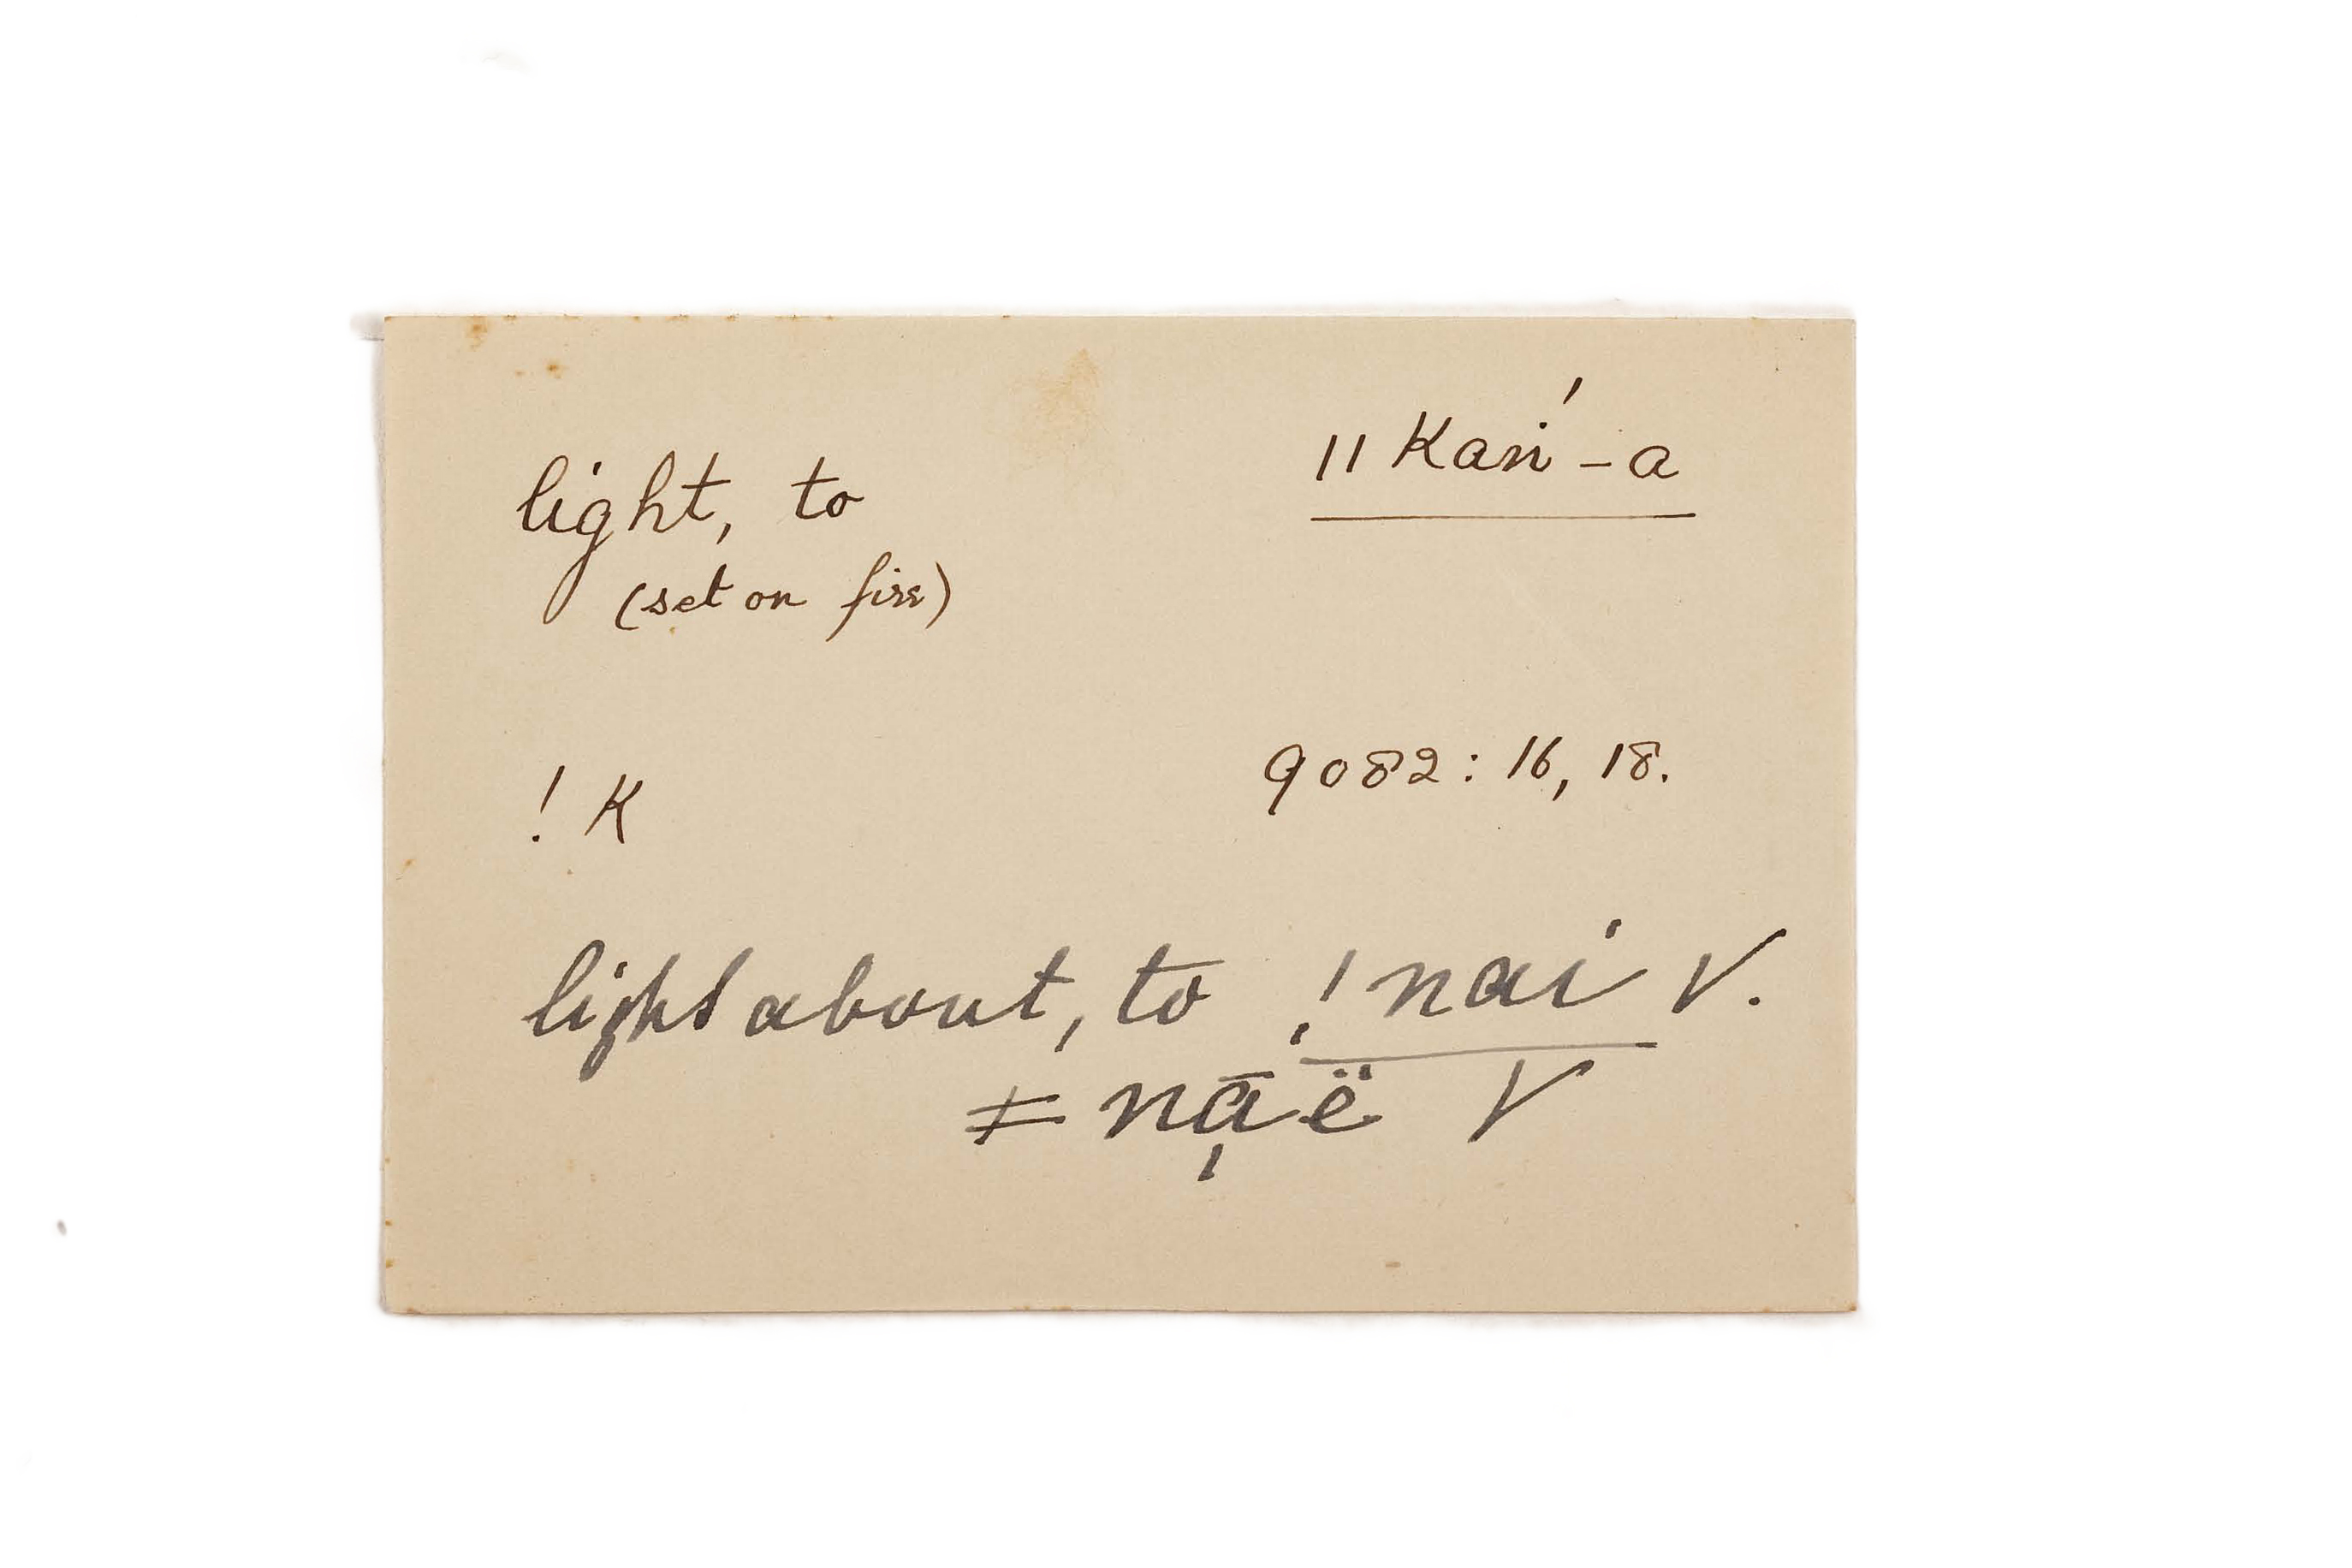 light, to ǁKaṅ́-a
(set on fire)
!K 9082: 16, 18.
light about, to !nai V.
ǂnā̦ë V